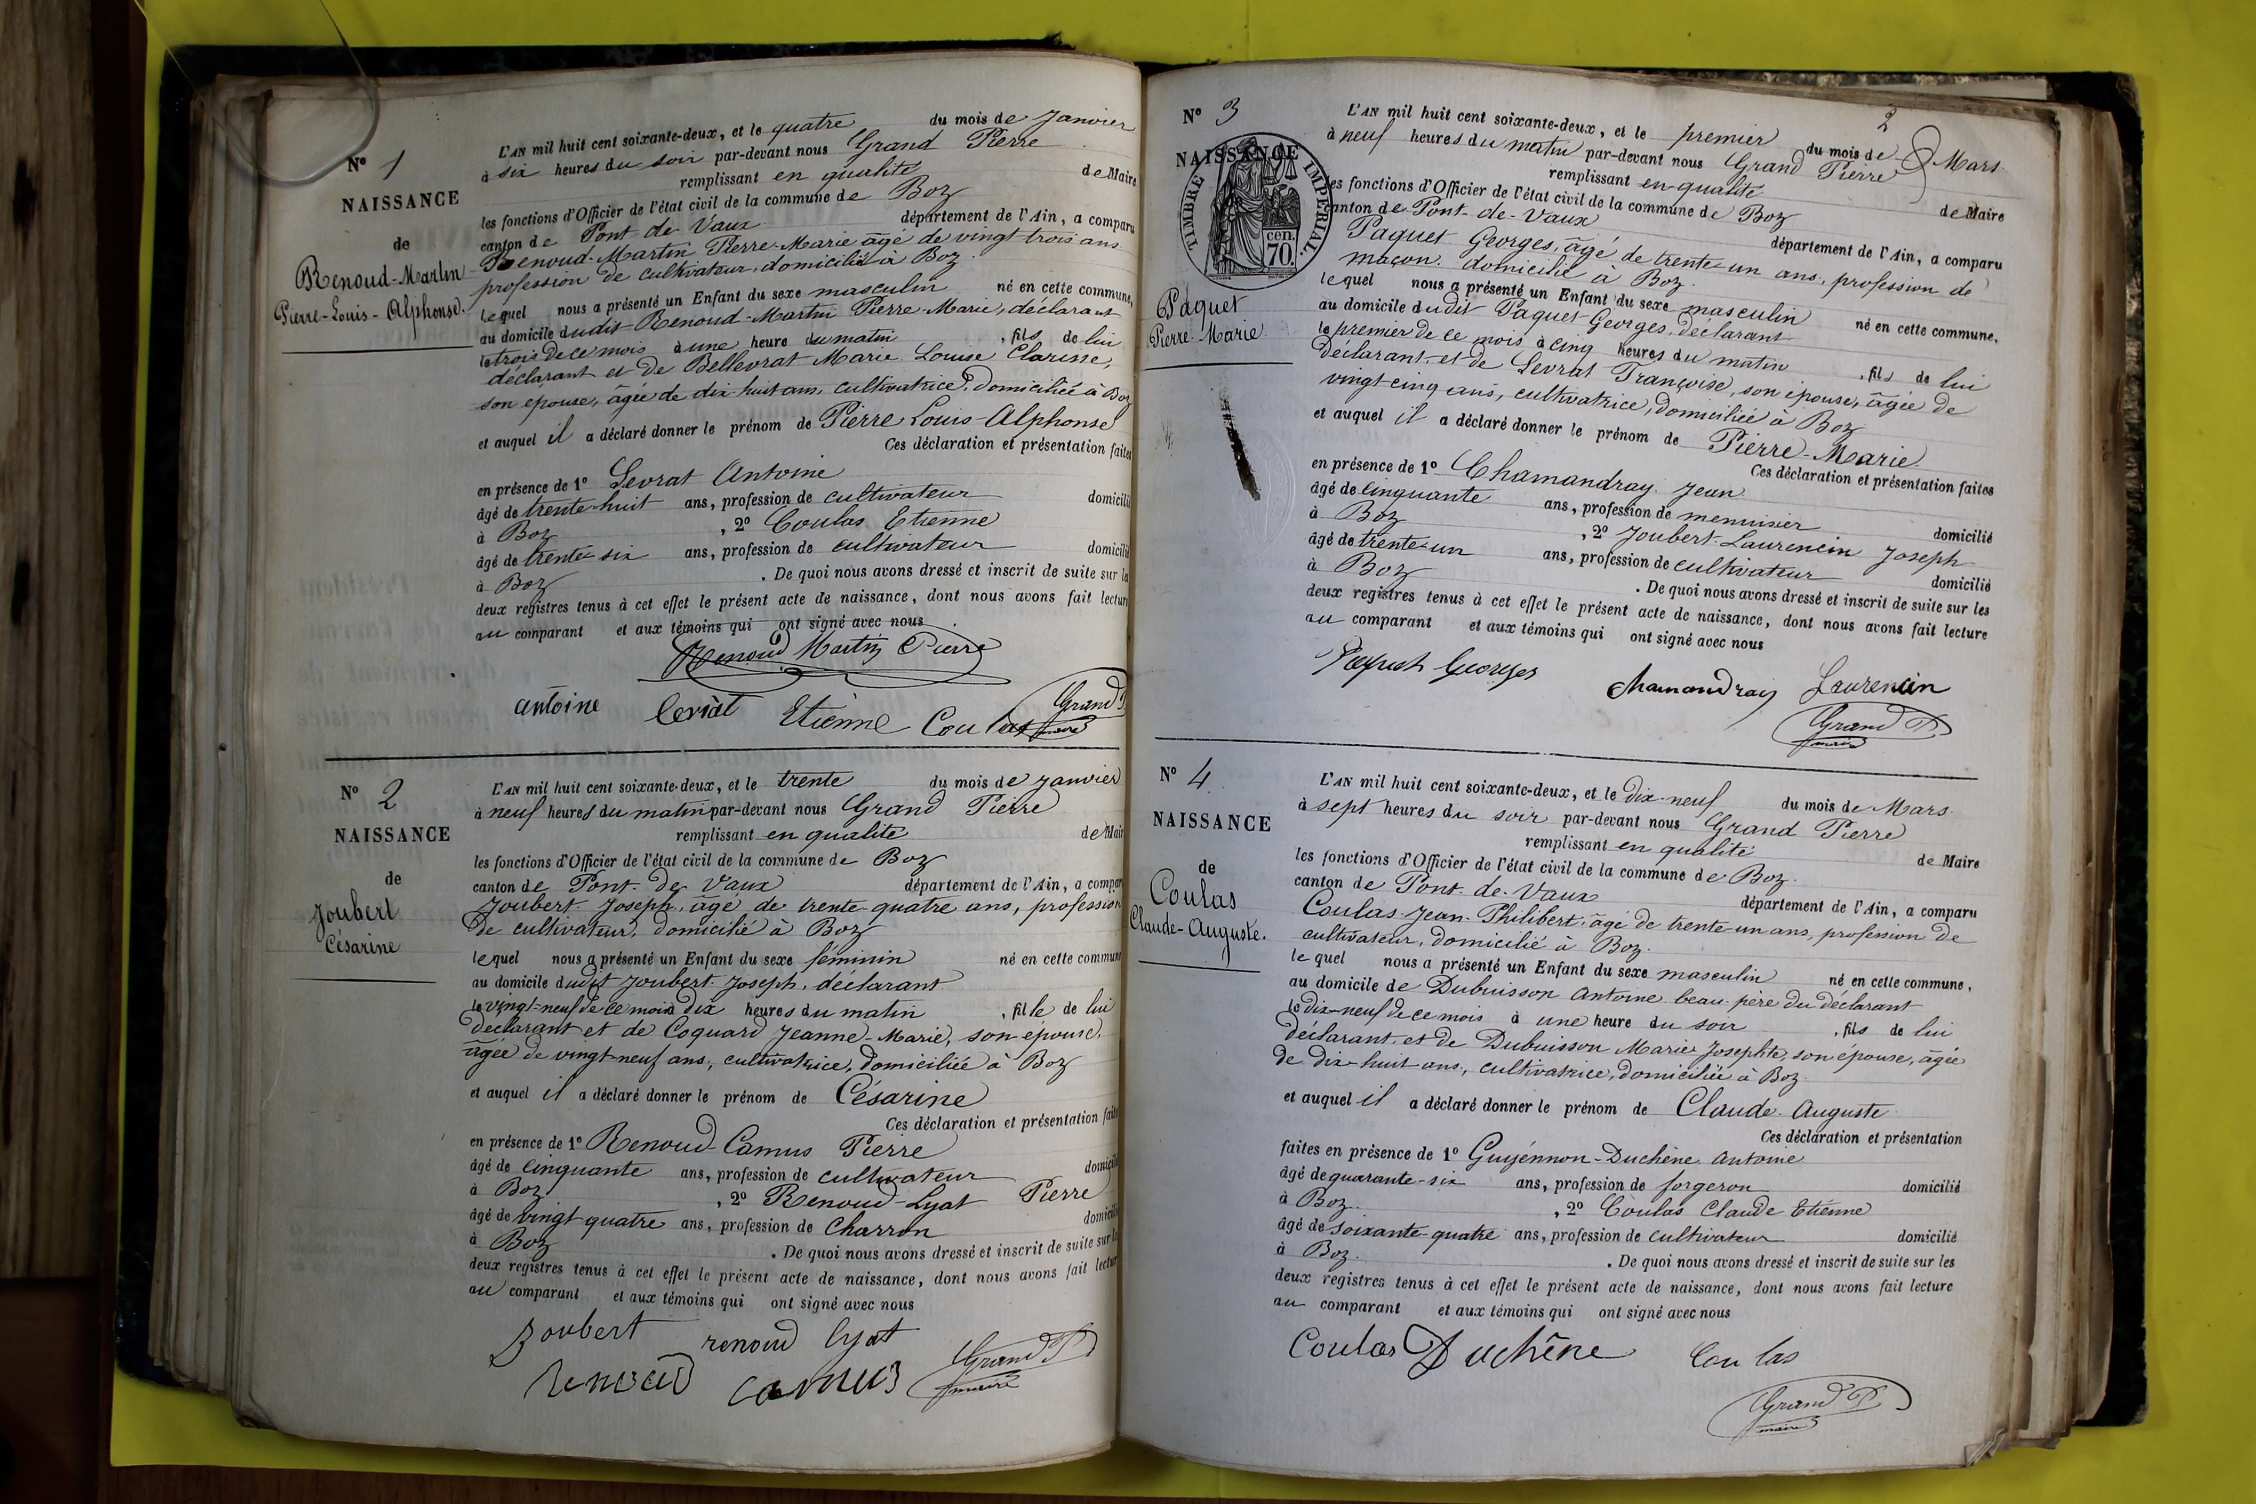 N° 1
NAISSANCE
de
Renoud-Martin
Pierre-Louis-Alphonse.
L'AN mil huit cent soixante-deux, et le quatre du mois de Janvier
à six heures du soir par-devant nous Grand Pierre
remplissant en qualité de Maire
les fonctions d'Officier de l'état civil de la commune de Boz
canton de Pont de Vaux département de l'Ain, a comparu
Renoud-Martin Pierre-Marie âgé de vingt trois ans
profession de cultivateur, domicilié à Boz
lequel nous a présenté un Enfant du sexe masculin né en cette commune,
au domicile dudit Renoud-Martin Pierre-Marie, déclarant
le trois de ce mois à une heure du matin, fils de lui
déclarant et de Bellevrat Marie Louise Clarisse,
son épouse, âgée de dix huit ans, cultivatrice, domiciliée à Boz
et auquel il a déclaré donner le prénom de Pierre Louis-Alphonse
Ces déclaration et présentation faites
en présence de 1° Levrat Antoine
âgé de trente-huit ans, profession de cultivateur domicilié
à Boz, 2° Coulas Etienne
âgé de trente-six ans, profession de cultivateur domicilié
à Boz. De quoi nous avons dressé et inscrit de suite sur le
deux registres tenus à cet effet le présent acte de naissance, dont nous avons fait lecture
au comparant et aux témoins qui ont signé avec nous
Renoud Martin Pierre
antoine levrat Etienne Coulas Grand P.
maire
N° 2
NAISSANCE
de
Joubert
Césarine
L'AN mil huit cent soixante-deux, et le trente du mois de Janvier
à neuf heures du matin par-devant nous Grand Pierre
remplissant en qualité de Mair
les fonctions d'Officier de l'état civil de la commune de Boz
canton de Pont-de Vaux département de l'Ain, a compar
Joubert Joseph, âgé de trente quatre ans, profession
de cultivateur, domicilié à Boz
lequel nous a présenté un Enfant du sexe féminin né en cette commune
au domicile dudit Joubert Joseph, déclarant
le vingt-neuf de ce mois à dix heures du matin, fille de lui
déclarant et de Coquard Jeanne-Marie, son épouse,
âgée de vingt-neuf ans, cultivatrice, domiciliée à Boz
et auquel il a déclaré donner le prénom de Césarine
Ces déclaration et présentation faite
en présence de 1° Renoud-Camus Pierre
âgé de cinquante ans, profession de cultivateur domicilié
à Boz, 2° Renoud-Lyat Pierre
âgé de vingt quatre ans, profession de Charron domicilié
à Boz. De quoi nous avons dressé et inscrit de suite sur le
deux registres tenus à cet effet le présent acte de naissance, dont nous avons fait lectur
au comparant et aux témoins qui ont signé avec nous
Joubert renoud lyat Grand P
renoud camus maire
2
N° 3
NAISSANCE
TIMBRE IMPÉRIAL
70. cen.
Paquet
Pierre-Marie
L'AN mil huit cent soixante-deux, et le premier du mois de Mars
à neuf heures du matin par-devant nous Grand Pierre
remplissant en qualité de Maire
les fonctions d'Officier de l'état civil de la commune de Boz
canton de Pont-de-Vaux département de l'Ain, a comparu
Paquet Georges, âgé de trente-un ans, profession de
maçon, domicilié à Boz.
lequel nous a présenté un Enfant du sexe masculin né en cette commune,
au domicile dudit Paquet Georges, déclarant
le premier de ce mois à cinq heures du matin, fils de lui
déclarant, et de Levrat Françoise, son épouse, âgée de
vingt-cinq ans, cultivatrice, domiciliée à Boz
et auquel il a déclaré donner le prénom de Pierre-Marie
Ces déclaration et présentation faites
en présence de 1° Chamandray Jean
âgé de cinquante ans, profession de menuisier domicilié
à Boz, 2° Joubert-Laurencin Joseph
âgé de trente-un ans, profession de cultivateur domicilié
à Boz. De quoi nous avons dressé et inscrit de suite sur les
deux registres tenus à cet effet le présent acte de naissance, dont nous avons fait lecture
au comparant et aux témoins qui ont signé avec nous
Georges chamandray Laurencin
Grand P.
maire
N° 4
NAISSANCE
de
Coulas
Claude-Auguste.
L'AN mil huit cent soixante-deux, et le dix-neuf du mois de Mars
à sept heures du soir par-devant nous Grand Pierre
remplissant en qualité de Maire
les fonctions d'Officier de l'état civil de la commune de Boz.
canton de Pont-de-Vaux département de l'Ain, a comparu
Coulas Jean-Philibert, âgé de trente-un ans, profession de
cultivateur, domicilié à Boz.
lequel nous a présenté un Enfant du sexe masculin né en cette commune,
au domicile de Dubuisson Antoine beau-père du déclarant
le dix-neuf de ce mois à une heure du soir, fils de lui
déclarant, et de Dubuisson Marie Josephte, son épouse, âgée
de dix-huit ans, cultivatrice, domiciliée à Boz.
et auquel il a déclaré donner le prénom de Claude-Auguste
Ces déclaration et présentation
faites en présence de 1° Guyénnon-Duchêne Antoine
âgé de quarante-six ans, profession de forgeron domicilié
à Boz., 2° Coulas Claude Etienne
âgé de soixante-quatre ans, profession de cultivateur domicilié
à Boz.. De quoi nous avons dressé et inscrit de suite sur les
deux registres tenus à cet effet le présent acte de naissance, dont nous avons fait lecture
au comparant et aux témoins qui ont signé avec nous
Coulas Duchêne Coulas
Grand P.
maire